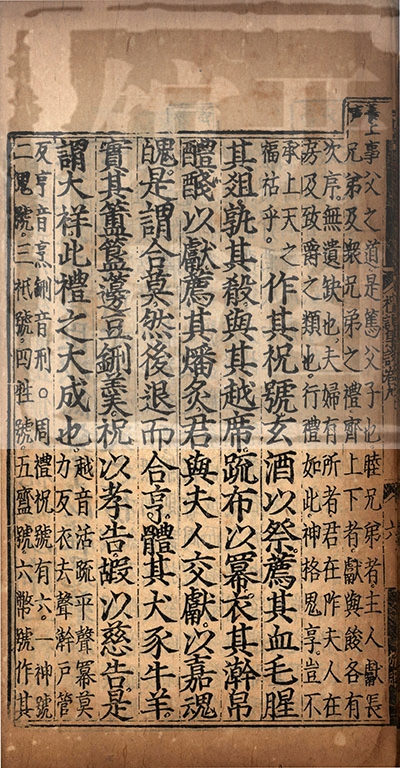 養上
声
事父之道是篤父子也睦兄弟者主人獻長
兄弟及衆兄弟之禮齊上下者獻與餕各有
次序無遺缺也夫婦有所者君在阼夫人在
房及致爵之類也行禮如此神格鬼享豈不
承上天之
福祜乎
作其祝號玄酒以祭薦其血毛腥
其俎孰其殽與其越席疏布以冪衣其澣帛
醴醆以獻薦其燔炙君與夫人交獻以嘉魂
魄是謂合莫然後退而合亨體其犬豕牛羊
實其簠簋籩豆鉶羹祝以孝告嘏以慈告是
謂大祥此禮之大成也
越音活疏平聲冪莫
力反衣去聲澣戶管
反亨音烹鉶音刑○周禮祝號有六一神號
二鬼號三祇號四牲號五齍號六幣號作其